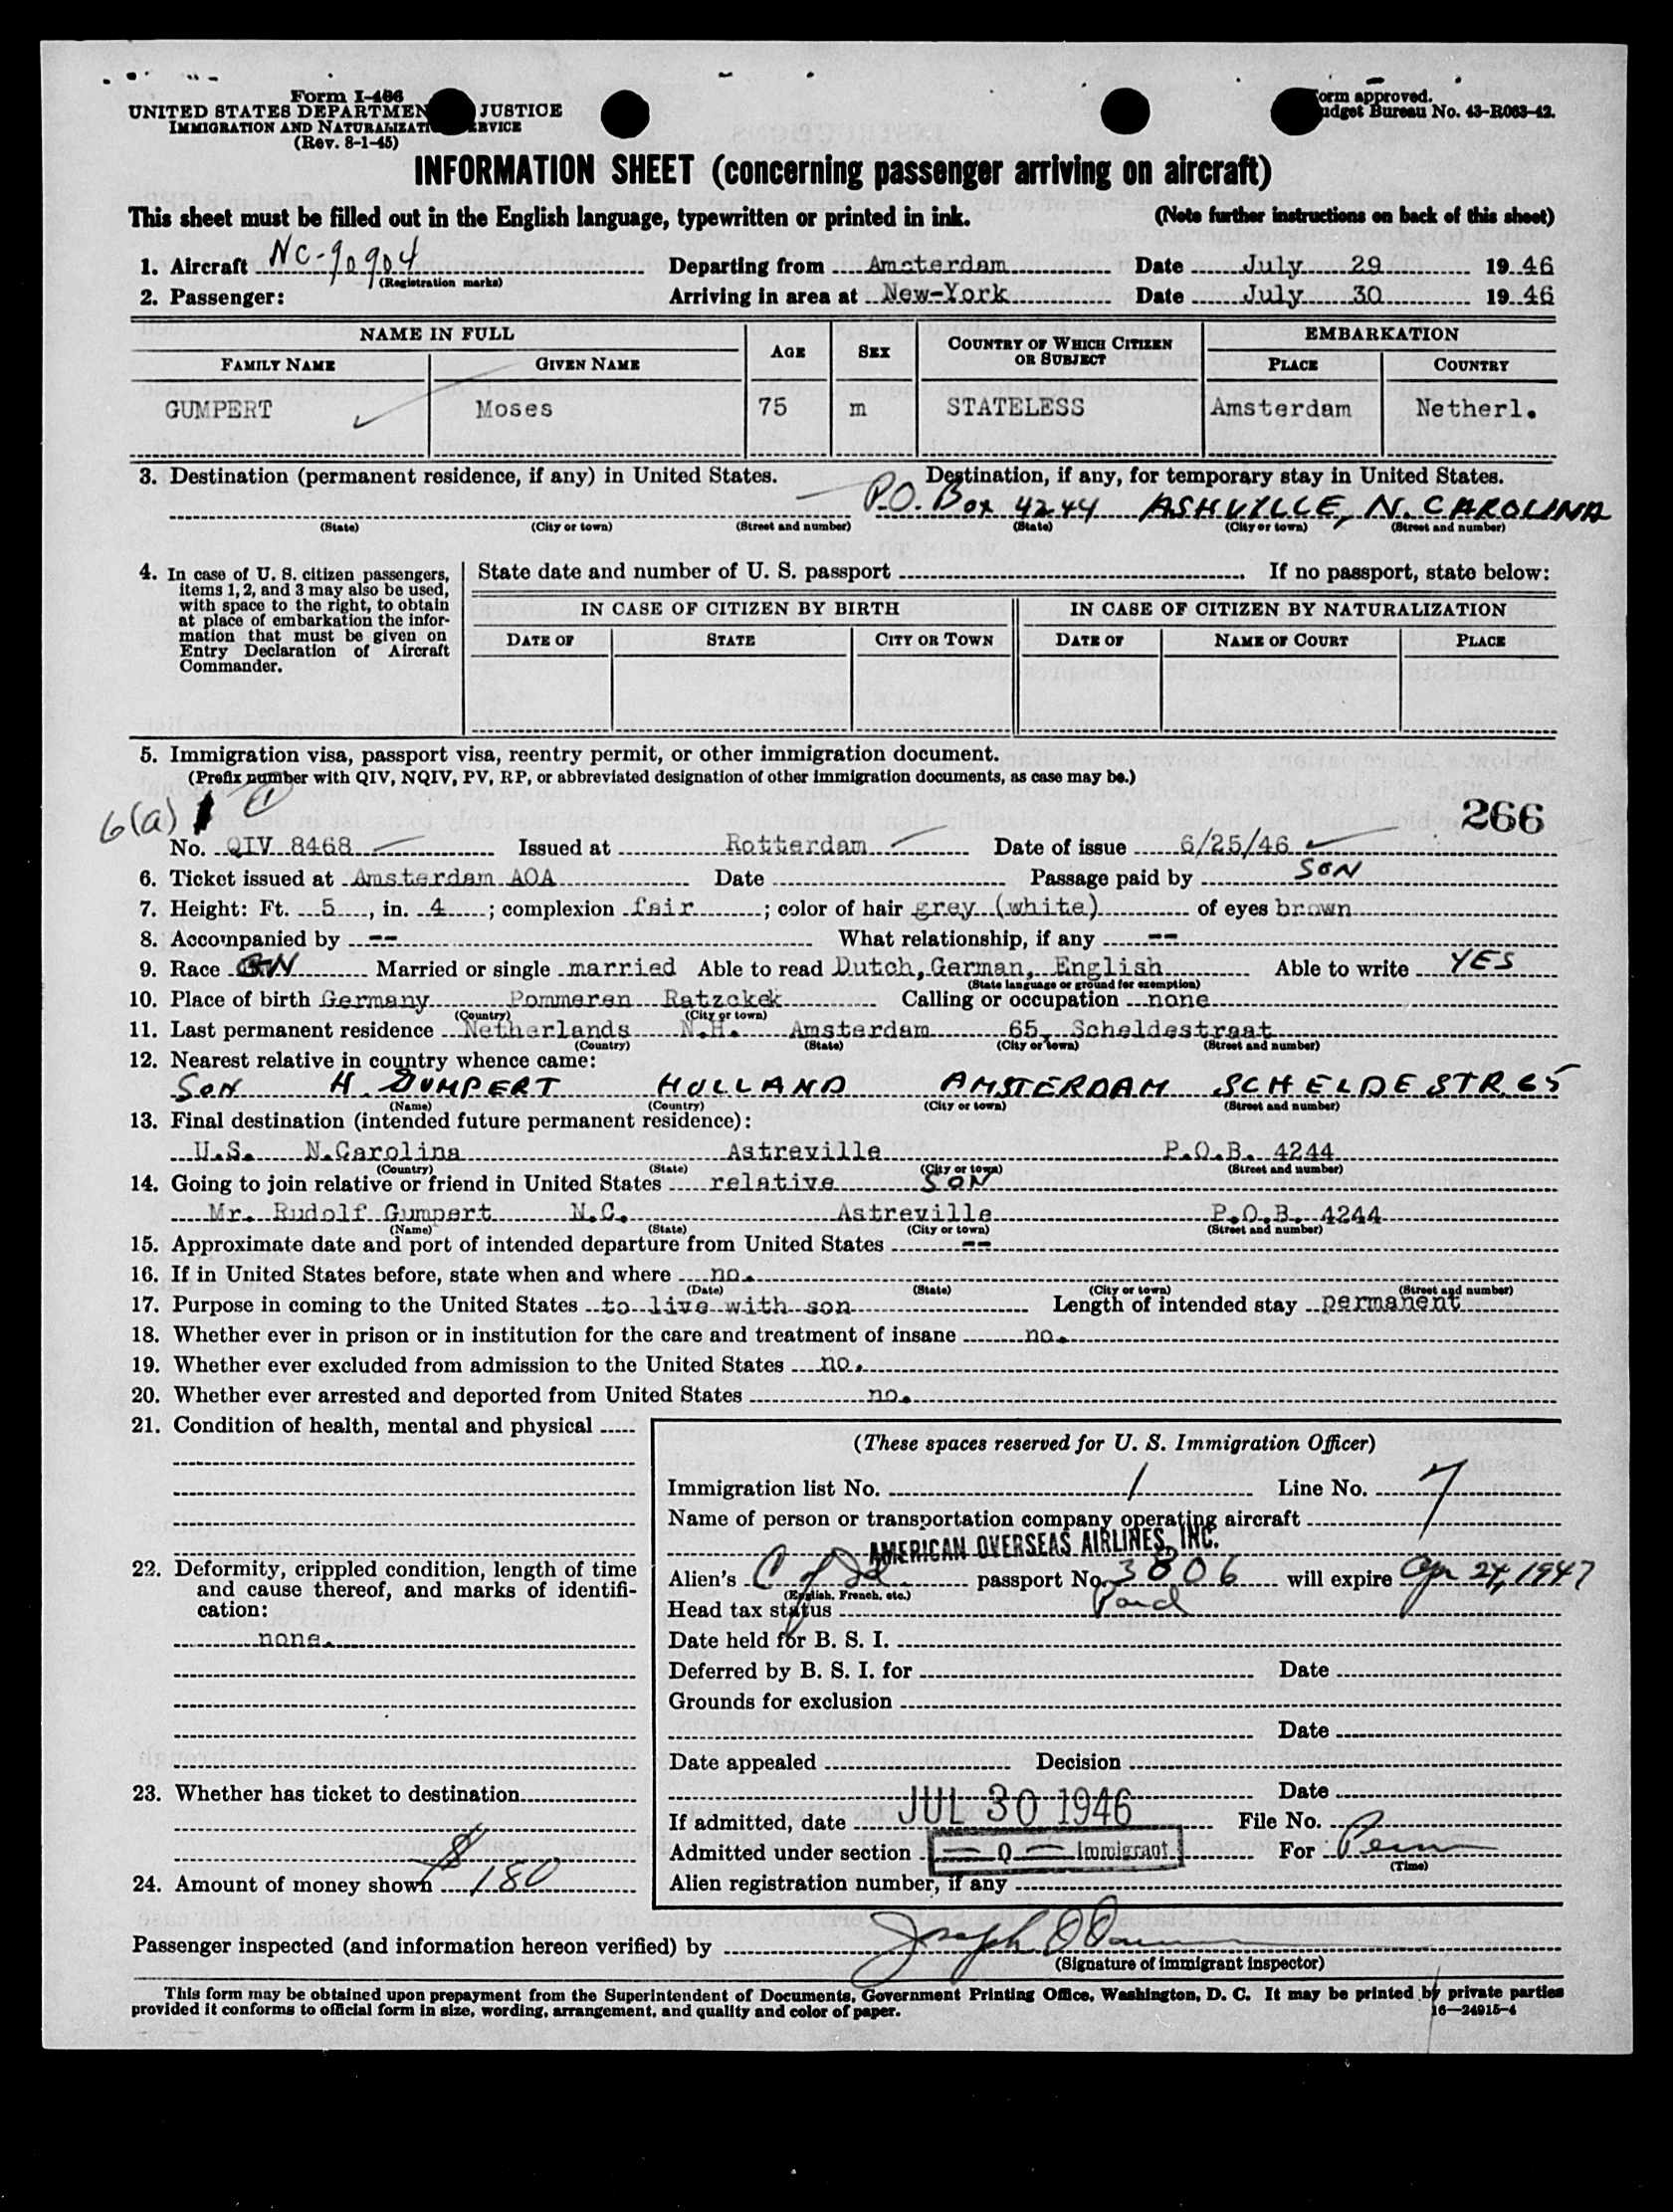 Form I-466
UNITED STATES DEPARTMEN JUSTICE
IMMIGRATION AND NATURALIZATI ERVICE
(Rev. 8-1-45)
orm approved.
udget Bureau No. 43-R063-42.
INFORMATION SHEET (concerning passenger arriving on aircraft)
This sheet must be filled out in the English language, typewritten or printed in ink. (Note further instructions on back of this sheet)
1. Aircraft NC-90904 Departing from Amsterdam Date July 29 1946
(Registration marks)
2. Passenger: Arriving in area at New-York Date July 30 1946
NAME IN FULL AGE SEX COUNTRY OF WHICH CITIZEN OR SUBJECT EMBARKATION
FAMILY NAME GIVEN NAME PLACE COUNTRY
GUMPERT Moses 75 m STATELESS Amsterdam Netherl.
3. Destination (permanent residence, if any) in United States. Destination, if any, for temporary stay in United States.
P.O. Box 4244 ASHVILLE, N. CAROLINA
(State) (City or town) (Street and number) (State) (City or town) (Street and number)
4. In case of U. S. citizen passengers,
items 1, 2, and 3 may also be used,
with space to the right, to obtain
at place of embarkation the infor-
mation that must be given on
Entry Declaration of Aircraft
Commander.
State date and number of U. S. passport . If no passport, state below:
IN CASE OF CITIZEN BY BIRTH IN CASE OF CITIZEN BY NATURALIZATION
DATE OF STATE CITY OR TOWN DATE OF NAME OF COURT PLACE
5. Immigration visa, passport visa, reentry permit, or other immigration document.
(Prefix number with QIV, NQIV, PV, RP, or abbreviated designation of other immigration documents, as case may be.)
6(a) 1 266
No. QIV 8468 Issued at Rotterdam Date of issue 6/25/46
6. Ticket issued at Amsterdam AOA Date Passage paid by SON
7. Height: Ft. 5, in. 4; complexion fair; color of hair grey (white) of eyes brown
8. Accompanied by -- What relationship, if any --
9. Race Married or single married Able to read Dutch, German, English Able to write YES
(State language or ground for exemption)
10. Place of birth Germany Pommeren Ratzckek Calling or occupation none
(Country) (City or town)
11. Last permanent residence Netherlands N.H. Amsterdam 65, Scheldestraat
(Country) (State) (City or town) (Street and number)
12. Nearest relative in country whence came:
SON H. GUMPERT HOLLAND AMSTERDAM SCHELDESTR. 65
(Name) (Country) (City or town) (Street and number)
13. Final destination (intended future permanent residence):
U.S. N.Carolina Astreville P.O.B. 4244
(Country) (State) (City or town) (Street and number)
14. Going to join relative or friend in United States relative SON
Mr. Rudolf Gumpert N.C. Astreville P.O.B. 4244
(Name) (State) (City or town) (Street and number)
15. Approximate date and port of intended departure from United States --
16. If in United States before, state when and where no.
(Date) (State) (City or town) (Street and number)
17. Purpose in coming to the United States to live with son Length of intended stay permanent
18. Whether ever in prison or in institution for the care and treatment of insane no.
19. Whether ever excluded from admission to the United States no.
20. Whether ever arrested and deported from United States no.
21. Condition of health, mental and physical
22. Deformity, crippled condition, length of time
and cause thereof, and marks of identifi-
cation:
none.
23. Whether has ticket to destination
24. Amount of money shown $180
(These spaces reserved for U. S. Immigration Officer)
Immigration list No. 1 Line No. 7
Name of person or transportation company operating aircraft
AMERICAN OVERSEAS AIRLINES, INC.
Alien's C of Id. passport No. 3806 will expire Apr 24, 1947
(English, French, etc.)
Head tax status Paid
Date held for B. S. I.
Deferred by B. S. I. for Date
Grounds for exclusion
Date
Date appealed Decision
Date
If admitted, date JUL 30 1946 File No.
Admitted under section Q Immigrant For Perm
(Time)
Alien registration number, if any
Passenger inspected (and information hereon verified) by Joseph
(Signature of immigrant inspector)
This form may be obtained upon prepayment from the Superintendent of Documents, Government Printing Office, Washington, D. C. It may be printed by private parties
provided it conforms to official form in size, wording, arrangement, and quality and color of paper. 16—24915-4